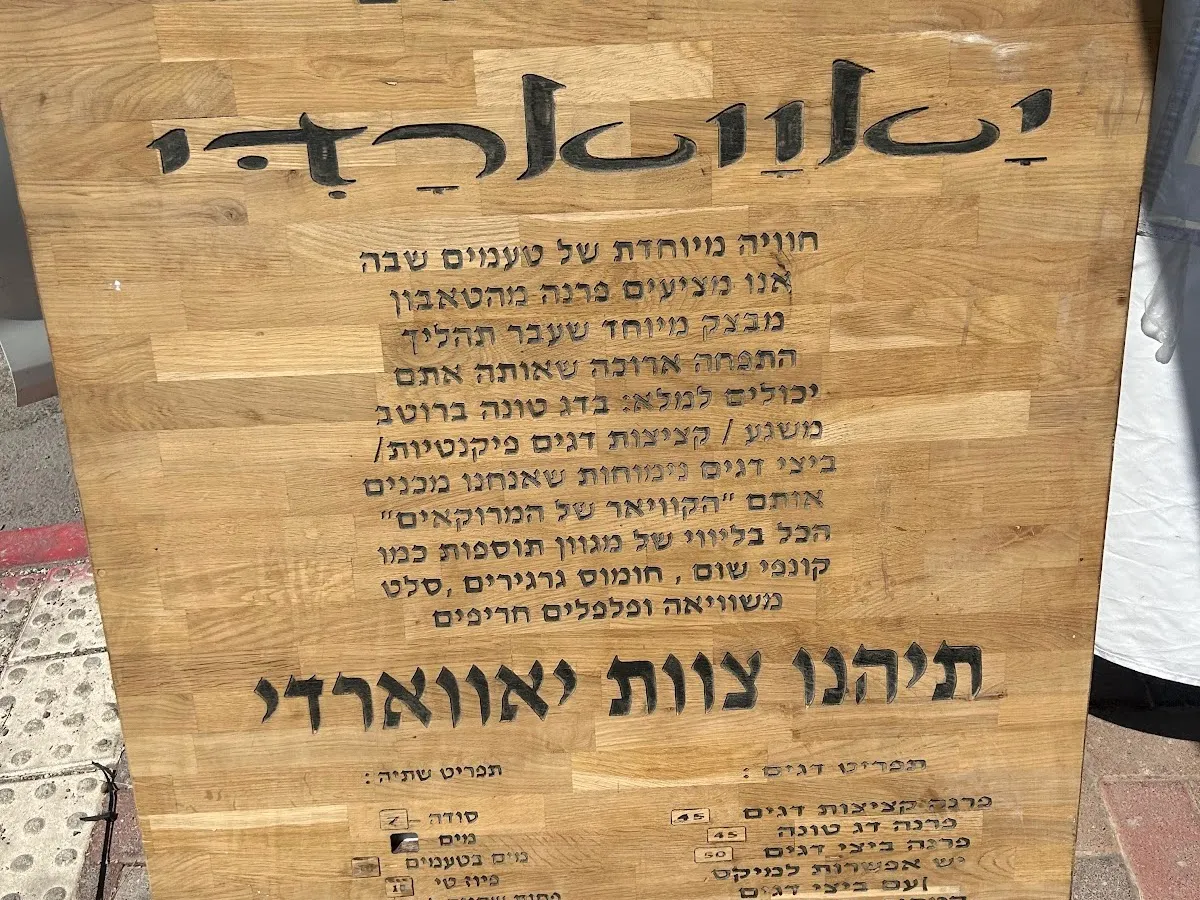 יַאווַארַדִּי
חוויה מיוחדת של טעמים שבה
אנו מציעים פרנה מהטאבון
מבצק מיוחד שעבר תהליך
התפחה ארוכה שאותה אתם
יכולים למלא: בדג טונה ברוטב
משגע / קציצות דגים פיקנטיות/
ביצי דגים נימוחות שאנחנו מכנים
אותם "הקוויאר של המרוקאים"
הכל בליווי של מגוון תוספות כמו
קונפי שום , חומוס גרגירים ,סלט
משוויאה ופלפלים חריפים
תיהנו צוות יאווארדי
תפריט דגים :
פרנה קציצות דגים 45
פרנה דג טונה 45
פרנה ביצי דגים 50
יש אפשרות למיקס
עם ביצי דגים
תפריט שתיה :
סודה - 7
מים
מים בטעמים
פיוז טי